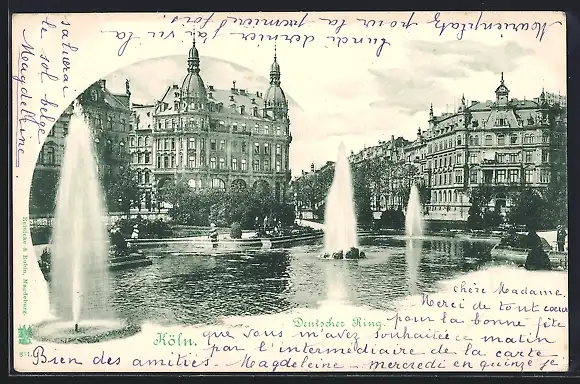 chère Madame.
Merci de tout cœur
pour la bonne fête
que vous m'avez souhaitée ce matin
par l'intermédiaire de la carte
Bien des amitiés - Magdeleine - mercredi en quinze je
salurai
le sol belge
Magdeleine
Marienplatz pour la première fois,
lundi dernier j'ai vu la
Köln.
Deutscher Ring.
Reinicke & Rubin, Magdeburg.